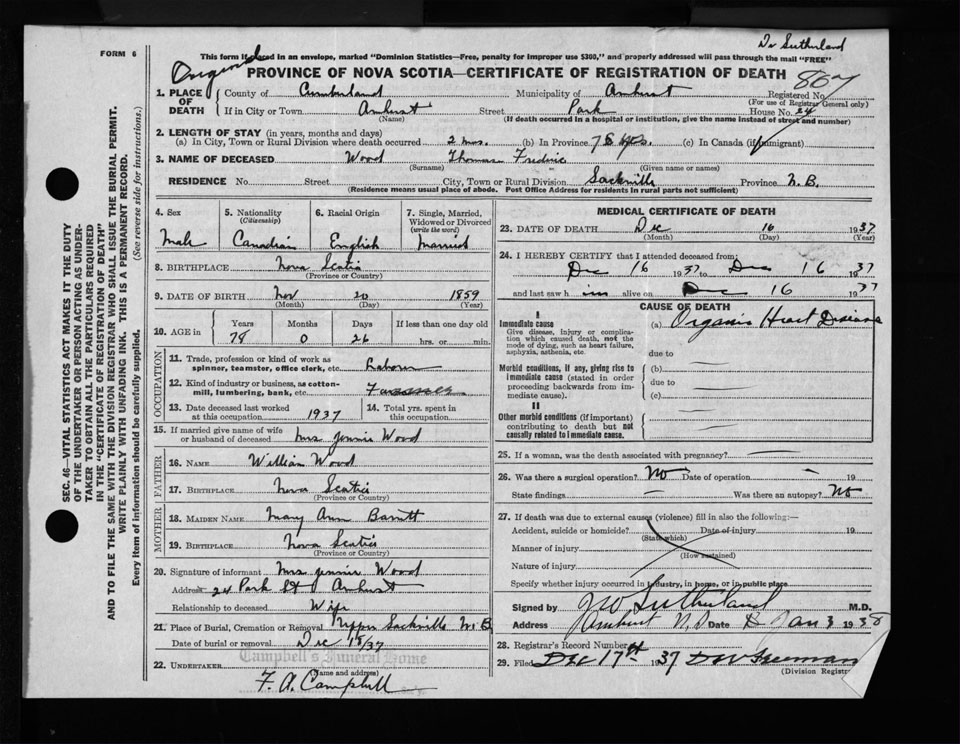 FORM 6
Dr Sutherland
This form if placed in an envelope, marked "Dominion Statistics—Free, penalty for improper use $300," and properly addressed will pass through the mail "FREE"
Original
PROVINCE OF NOVA SCOTIA—CERTIFICATE OF REGISTRATION OF DEATH
867
1. PLACE OF DEATH County of Cumberland Municipality of Amherst Registered No.
(For use of Registrar General only)
If in City or Town Amherst Street Park House No. 24
(Name) (If death occurred in a hospital or institution, give the name instead of street and number)
2. LENGTH OF STAY (in years, months and days)
(a) In City, Town or Rural Division where death occurred 2 mos. (b) In Province 78 yrs. (c) In Canada (if immigrant)
3. NAME OF DECEASED Wood Thomas Fredric
(Surname) (Given name or names)
RESIDENCE No. Street City, Town or Rural Division Sackville Province N.B.
(Residence means usual place of abode. Post Office Address for residents in rural parts not sufficient)
4. Sex Male
5. Nationality (Citizenship) Canadian
6. Racial Origin English
7. Single, Married, Widowed or Divorced (write the word) Married
8. BIRTHPLACE Nova Scotia
(Province or Country)
9. DATE OF BIRTH Nov 20 1859
(Month) (Day) (Year)
10. AGE in Years Months Days If less than one day old
78 0 26 hrs. or min.
OCCUPATION
11. Trade, profession or kind of work as spinner, teamster, office clerk, etc. Laborer
12. Kind of industry or business, as cotton-mill, lumbering, bank, etc.
13. Date deceased last worked at this occupation 1937
14. Total yrs. spent in this occupation
15. If married give name of wife or husband of deceased Mrs Jennie Wood
FATHER
16. NAME William Wood
17. BIRTHPLACE Nova Scotia
(Province or Country)
MOTHER
18. MAIDEN NAME Mary Ann Barrett
19. BIRTHPLACE Nova Scotia
(Province or Country)
20. Signature of informant Mrs Jennie Wood
Address 24 Park St Amherst
Relationship to deceased Wife
21. Place of Burial, Cremation or Removal Upper Sackville N.B
Date of burial or removal Dec 18/37
Campbell's Funeral Home
22. UNDERTAKER F. A. Campbell
(Name and address)
MEDICAL CERTIFICATE OF DEATH
23. DATE OF DEATH Dec 16 1937
(Month) (Day) (Year)
24. I HEREBY CERTIFY that I attended deceased from:
Dec 16 1937 to Dec 16 1937
and last saw him alive on Dec 16 1937
CAUSE OF DEATH
I
Immediate cause (a) Organic Heart Disease
Give disease, injury or complication which caused death, not the mode of dying, such as heart failure, asphyxia, asthenia, etc.
due to
Morbid conditions, if any, giving rise to immediate cause (stated in order proceeding backwards from immediate cause).
(b)
due to
(c)
II
Other morbid conditions (if important) contributing to death but not causally related to immediate cause.
25. If a woman, was the death associated with pregnancy?
26. Was there a surgical operation? No Date of operation 19
State findings Was there an autopsy? No
27. If death was due to external causes (violence) fill in also the following:—
Accident, suicide or homicide? Date of injury 19
(State which)
Manner of injury
(How sustained)
Nature of injury
Specify whether injury occurred in industry, in home, or in public place
Signed by J W Sutherland M.D.
Address Amherst N.S Date Jan 3 1938
28. Registrar's Record Number
29. Filed Dec 17th 1937
(Division Registrar
SEC. 46—VITAL STATISTICS ACT MAKES IT THE DUTY
OF THE UNDERTAKER OR PERSON ACTING AS UNDER-
TAKER TO OBTAIN ALL THE PARTICULARS REQUIRED
IN THE "CERTIFICATE OF REGISTRATION OF DEATH"
AND TO FILE THE SAME WITH THE DIVISION REGISTRAR WHO SHALL ISSUE THE BURIAL PERMIT.
WRITE PLAINLY WITH UNFADING INK. THIS IS A PERMANENT RECORD.
Every item of information should be carefully supplied. (See reverse side for instructions.)